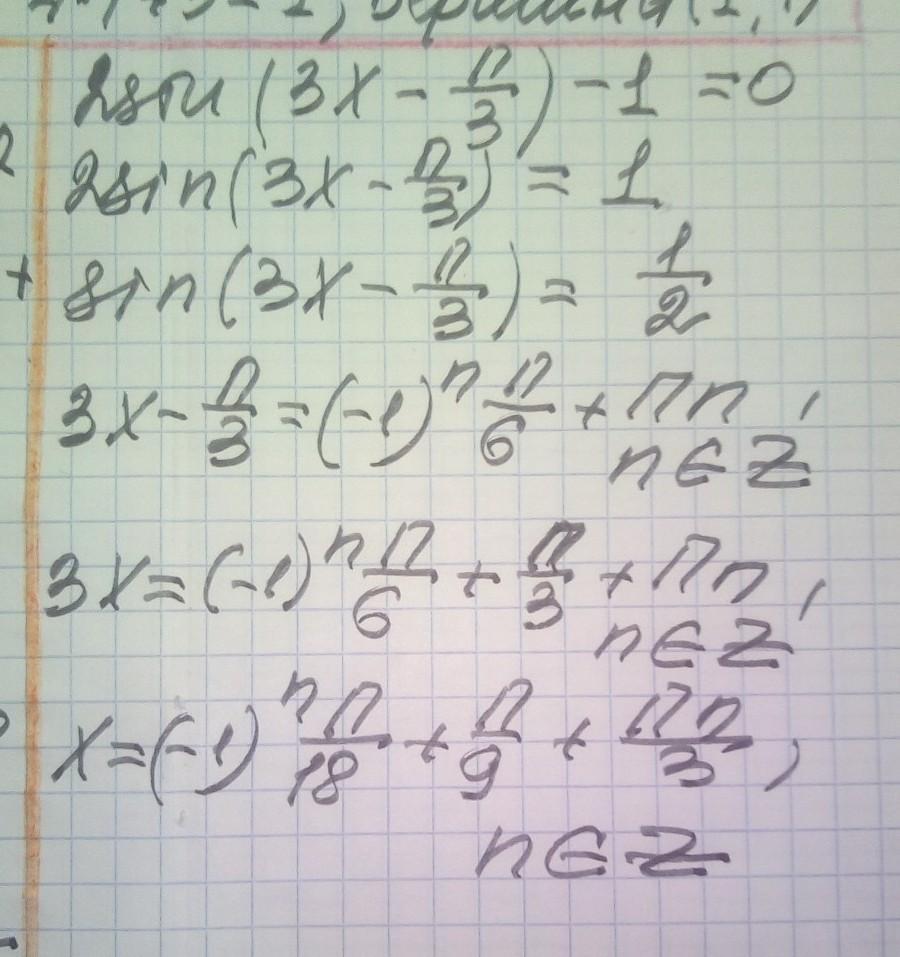 2sin(3x - π/3) - 1 = 0
2sin(3x - π/3) = 1
sin(3x - π/3) = 1/2
3x - π/3 = (-1)^n π/6 + πn,
n ∈ Z
3x = (-1)^n π/6 + π/3 + πn,
n ∈ Z
x = (-1)^n π/18 + π/9 + πn/3,
n ∈ Z